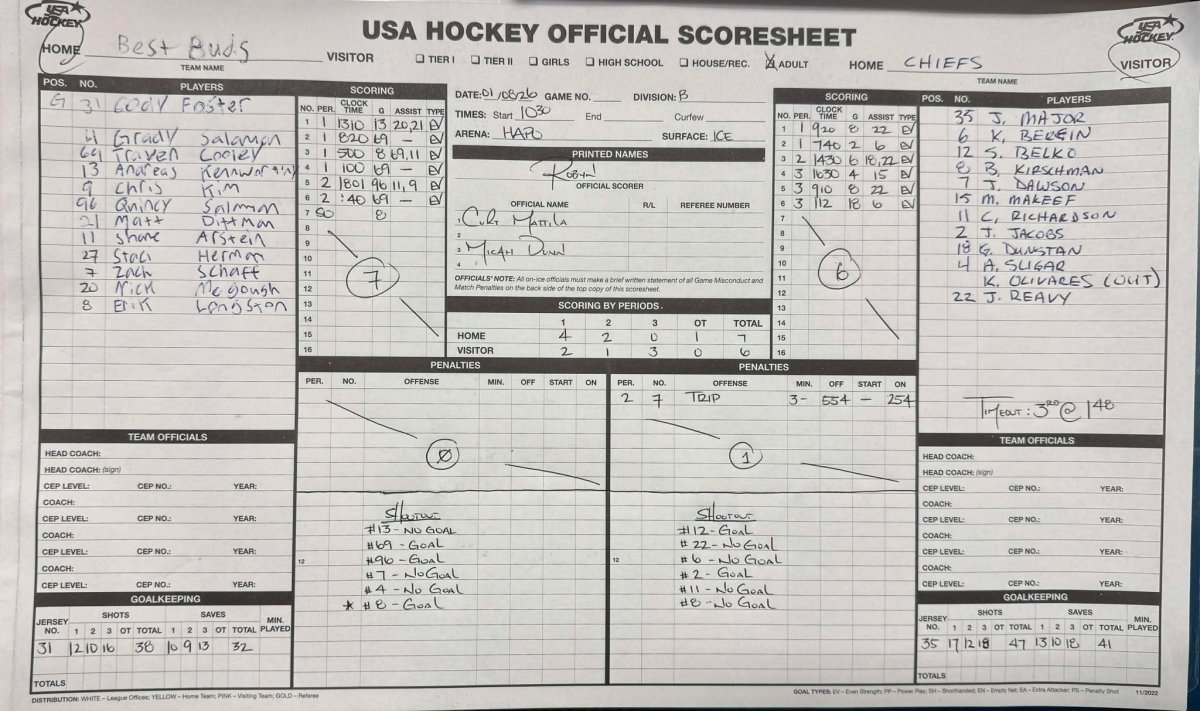 USA HOCKEY
USA HOCKEY OFFICIAL SCORESHEET
USA HOCKEY
HOME Best Buds VISITOR
TEAM NAME
☐ TIER I ☐ TIER II ☐ GIRLS ☐ HIGH SCHOOL ☐ HOUSE/REC. ☒ ADULT
HOME CHIEFS VISITOR
TEAM NAME
POS. NO. PLAYERS
G 31 Cody Foster
4 Grady Salamon
69 Traven Cooley
13 Andreas
9 Chris Kim
96 Quincy Salmon
21 Matt Dittman
11 Shane Arstein
27 Staci Herman
7 Zach Schaft
20 Nick McGough
8 Erik Longston
SCORING
NO. PER. CLOCK TIME G ASSIST TYPE
1 1 1310 13 20,21 EV
2 1 820 69 — EV
3 1 500 8 69,11 EV
4 1 100 69 — EV
5 2 1801 96 11,9 EV
6 2 :40 69 — EV
7 SO 8
8
9
10
11
12
13
14
15
16
7
DATE: 01/08/26 GAME NO. DIVISION: B
TIMES: Start 1030 End Curfew
ARENA: HAPO SURFACE: ICE
PRINTED NAMES
Robyn
OFFICIAL SCORER
OFFICIAL NAME R/L REFEREE NUMBER
1 Curt Mattila
2
3 Micah Dunn
4
OFFICIALS' NOTE: All on-ice officials must make a brief written statement of all Game Misconduct and
Match Penalties on the back side of the top copy of this scoresheet.
SCORING BY PERIODS
1 2 3 OT TOTAL
HOME 4 2 0 1 7
VISITOR 2 1 3 0 6
SCORING
NO. PER. CLOCK TIME G ASSIST TYPE
1 1 920 8 22 EV
2 1 740 2 6 EV
3 2 1430 6 18,22 EV
4 3 1630 4 15 EV
5 3 910 8 22 EV
6 3 112 18 6 EV
7
8
9
10
11
12
13
14
15
16
6
POS. NO. PLAYERS
35 J. MAJOR
6 K. BEREIN
12 S. BELKO
8 B. KIRSCHMAN
7 J. DAWSON
15 M. MAKEEF
11 C. RICHARDSON
2 J. JACOBS
18 G. DUNSTAN
4 A. SLIGAR
K. OLIVARES (OUT)
22 J. REAVY
TIMEOUT: 3RD @ 148
PENALTIES
PER. NO. OFFENSE MIN. OFF START ON
0
PENALTIES
PER. NO. OFFENSE MIN. OFF START ON
2 7 TRIP 3- 554 — 254
1
SHOOTOUT
#13 - NO GOAL
#69 - GOAL
12 #96 - GOAL
#7 - NO GOAL
#4 - NO GOAL
* #8 - GOAL
SHOOTOUT
#12 - GOAL
#22 - NO GOAL
12 #6 - NO GOAL
#2 - GOAL
#11 - NO GOAL
#8 - NO GOAL
TEAM OFFICIALS
HEAD COACH:
HEAD COACH: (sign)
CEP LEVEL: CEP NO.: YEAR:
COACH:
CEP LEVEL: CEP NO.: YEAR:
COACH:
CEP LEVEL: CEP NO.: YEAR:
COACH:
CEP LEVEL: CEP NO.: YEAR:
GOALKEEPING
JERSEY NO. SHOTS SAVES MIN. PLAYED
1 2 3 OT TOTAL 1 2 3 OT TOTAL
31 12 10 16 38 10 9 13 32
TOTALS
TEAM OFFICIALS
HEAD COACH:
HEAD COACH: (sign)
CEP LEVEL: CEP NO.: YEAR:
COACH:
CEP LEVEL: CEP NO.: YEAR:
COACH:
CEP LEVEL: CEP NO.: YEAR:
COACH:
CEP LEVEL: CEP NO.: YEAR:
GOALKEEPING
JERSEY NO. SHOTS SAVES MIN. PLAYED
1 2 3 OT TOTAL 1 2 3 OT TOTAL
35 17 12 18 47 13 10 18 41
TOTALS
DISTRIBUTION: WHITE – League Offices; YELLOW – Home Team; PINK – Visiting Team; GOLD – Referee
GOAL TYPES: EV – Even Strength; PP – Power Play; SH – Shorthanded; EN – Empty Net; EA – Extra Attacker; PS – Penalty Shot 11/2022